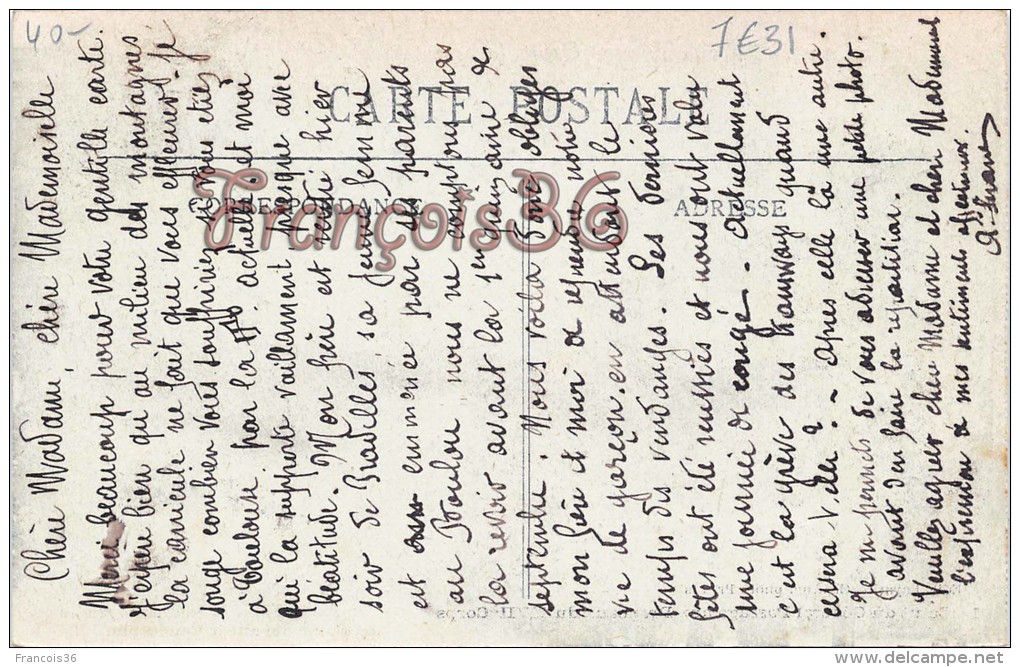 40-
7E31
CARTE POSTALE
CORRESPONDANCE
ADRESSE
François36 ©
Chère Madame, chère Mademoiselle
Merci beaucoup pour votre gentille carte.
J'espère bien qu'au milieu des montagnes
la canicule ne fait que vous effleurer. Je
songe combien vous souffririez si vous étiez
à Toulouse par la actuelle et moi
qui la supporte vaillamment presque avec
béatitude. Mon frère est venu hier
soir de Pradelles sa jeune femme
et emmenée par des parents
au Boulou nous ne comptons pas
la revoir avant la semaine de
septembre. Nous voilà donc obligés
mon frère et moi de reprendre notre
vie de garçon en attendant le
temps des vendanges. Les dernières
fêtes ont été réussies et nous ont valu
une journée de congé. Actuellement
c'est la grève des tramways quand
cessera-t-elle ? - après celle là une autre.
Je me permets de vous adresser une petite photo.
avant d'en faire la
Veuillez agréer chère Madame et chère Mademoiselle
l'expression de mes sentiments affectueux
Francois36